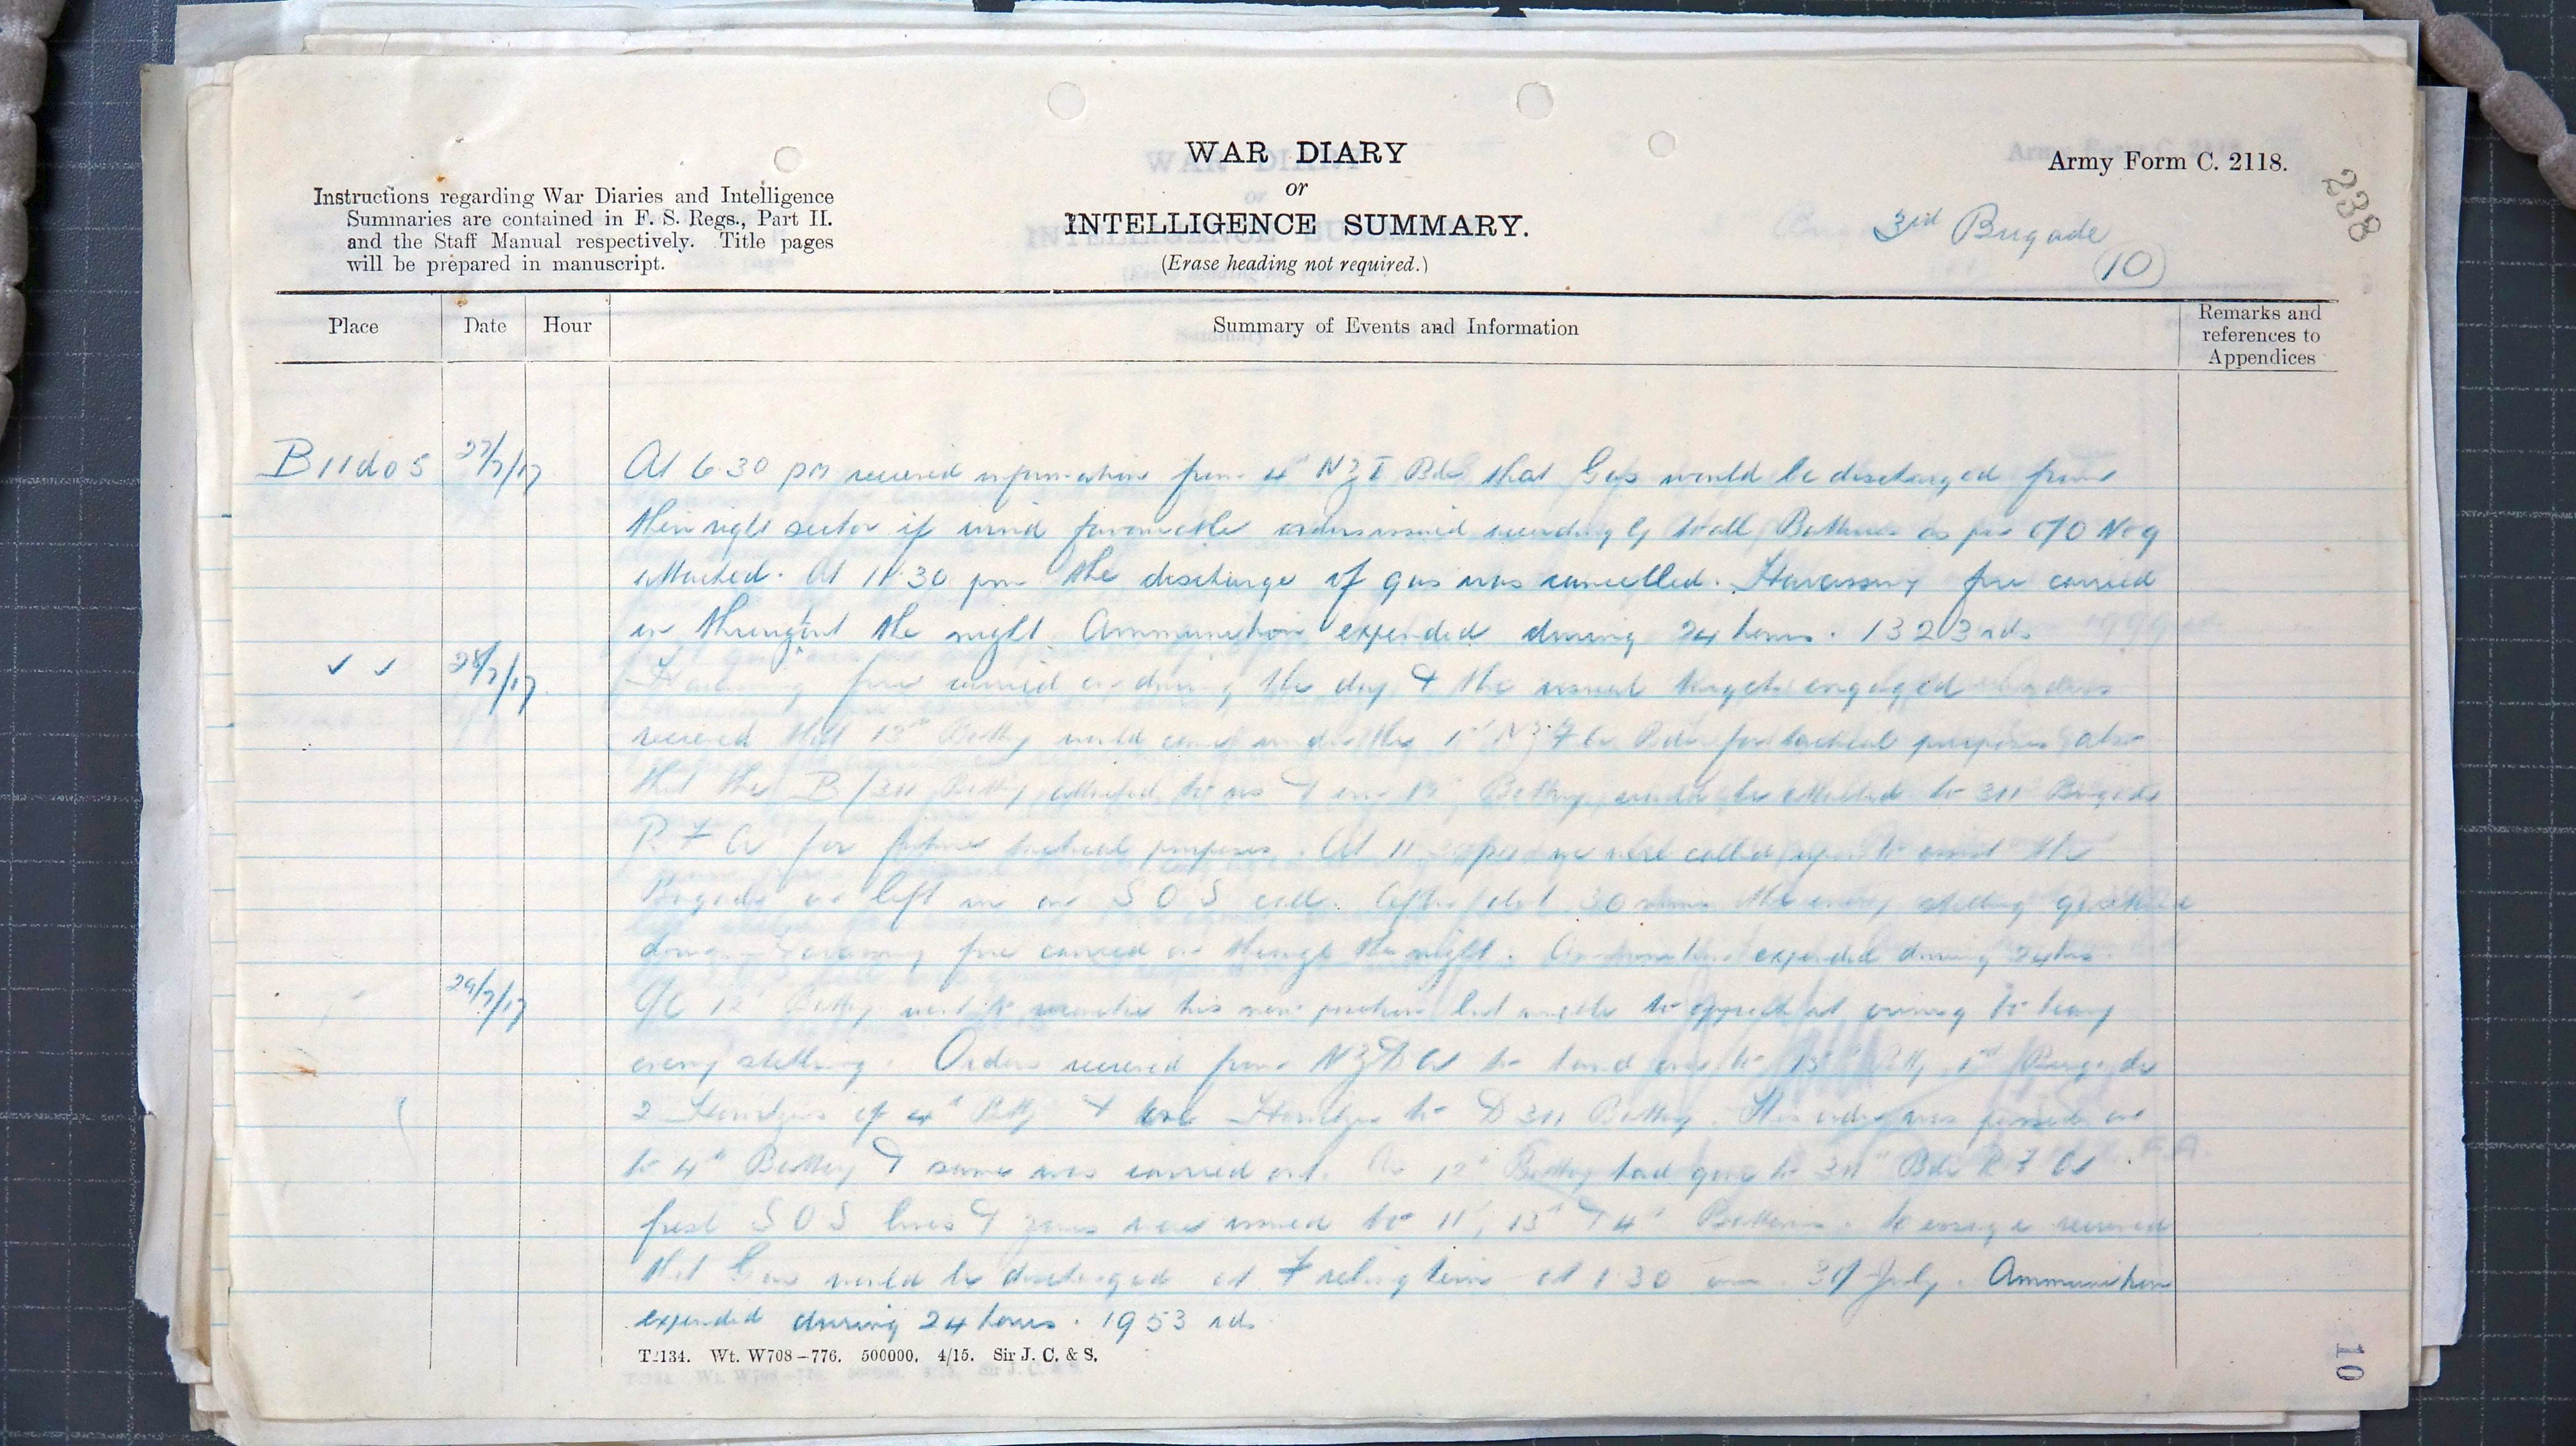 WAR DIARY
or
INTELLIGENCE SUMMARY.
(Erase heading not required.)
Army Form C. 2118.
238
Instructions regarding War Diaries and Intelligence
Summaries are contained in F. S. Regs., Part II.
and the Staff Manual respectively. Title pages
will be prepared in manuscript.
3rd Brigade
10
Place Date Hour Summary of Events and Information Remarks and references to Appendices
B 11 d 0 5 27/7/17 At 6.30 pm received information from 4th NZI Bde that Gas would be discharged from
their right sector if wind favourable orders issued accordingly to all Batteries as per O/O No 9
attached. At 11.30 pm the discharge of gas was cancelled. Harassing fire carried
on throughout the night Ammunition expended during 24 hours. 1323 rds
28/7/17 Harassing fire carried on during the day & the usual targets engaged
received that 13th Battery would come under the 1st NZFA Bde for tactical purposes also
that the B/311 Battery attached to us & our 12th Battery would be attached to 311 Brigade
R F A for future tactical purposes. At 11 we were called upon to assist the
Brigade on left in an S O S call. After about 30 mins the enemy shelling
down. Harassing fire carried on through the night. Ammunition expended during 24 hrs
29/7/17 O/C 12th Battery went to his new position but unable to approach it owing to heavy
enemy shelling. Orders received from NZDA to hand over to 15th Btty 1st Brigade
2 Howitzers of 4th Btty & one Howitzer to D 311 Battery. This order was passed on
to 4th Battery & same was carried out. As 12th Battery had gone to 311th Bde R F A
fresh S O S lines & zones were issued to 11th, 13th & 4th Batteries. Message received
that Gas would be discharged at Frelinghein at 1.30 am. July. Ammunition
expended during 24 hours. 1953 rds
T2134. Wt. W708-776. 500000. 4/15. Sir J. C. & S.
10